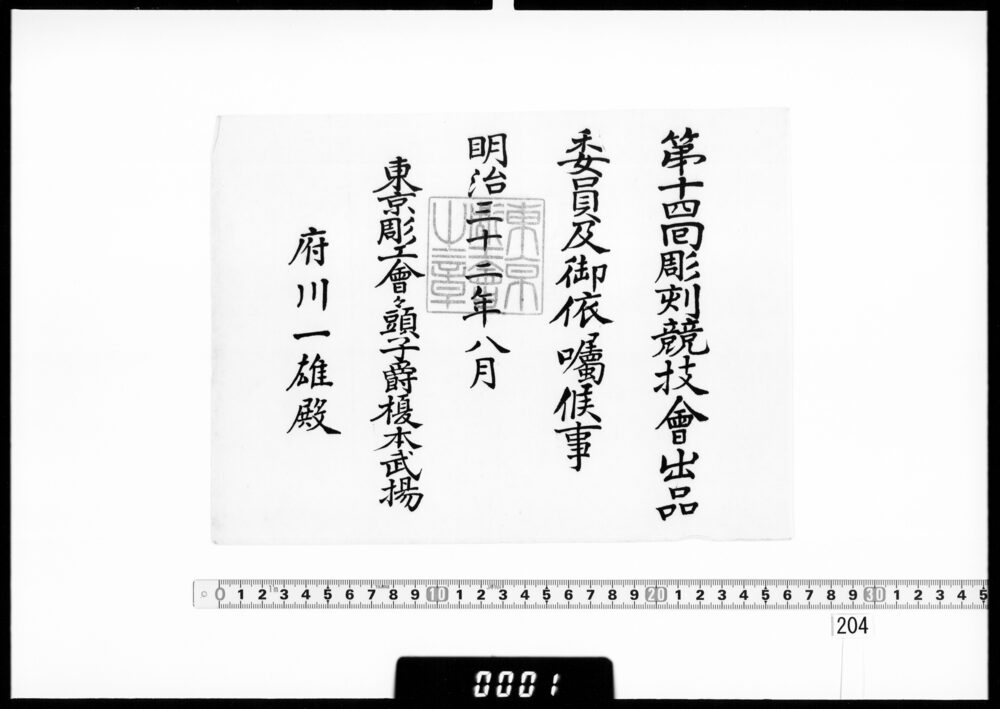 第十四回彫刻競技會出品
委員及御依囑候事
明治三十二年八月
東京彫工會々頭子爵榎本武揚
府川一雄殿
東京彫工會之章
0 1 2 3 4 5 6 7 8 9 10 1 2 3 4 5 6 7 8 9 20 1 2 3 4 5 6 7 8 9 30 1 2 3 4 5
204
0001